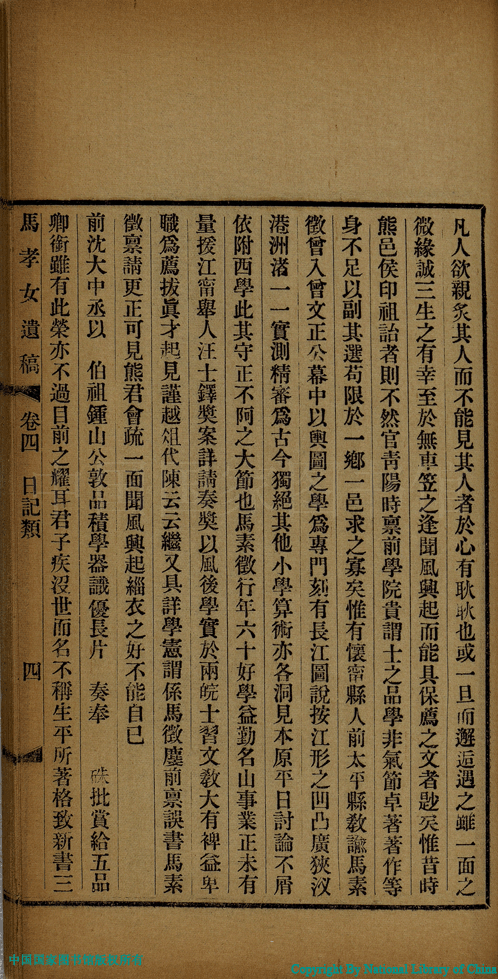 凡人欲親炙其人而不能見其人者於心有耿耿也或一旦而邂逅遇之雖一面之
微緣誠三生之有幸至於無車笠之逢聞風興起而能具保薦之文者尠矣惟昔時
熊邑侯印祖詒者則不然官靑陽時禀前學院貴謂士之品學非氣節卓著著作等
身不足以副其選苟限於一鄉一邑求之寡矣惟有懷甯縣人前太平縣敎諭馬素
徵曾入曾文正公幕中以輿圖之學爲專門刻有長江圖說按江形之凹凸廣狹汊
港洲渚一一實測精審爲古今獨絕其他小學算術亦各洞見本原平日討論不屑
依附西學此其守正不阿之大節也馬素徵行年六十好學益勤名山事業正未有
量援江甯舉人汪士鐸奬案詳請奏奬以風後學實於兩皖士習文敎大有裨益卑
職爲薦拔眞才起見謹越俎代陳云云繼又具詳學憲謂係馬徵麐前禀誤書馬素
徵禀請更正可見熊君會疏一面聞風興起緇衣之好不能自已
前沈大中丞以 伯祖鍾山公敦品積學器識優長片 奏奉 硃批賞給五品
卿銜雖有此榮亦不過目前之耀耳君子疾沒世而名不稱生平所著格致新書三
馬孝女遺稿 卷四 日記類 四
中国国家图书馆版权所有
Copyright By National Library of China